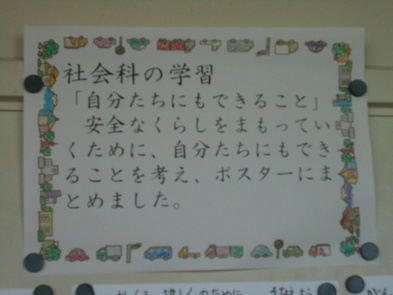 社会科の学習
「自分たちにもできること」
安全なくらしをまもってい
くために、自分たちにもでき
ることを考え、ポスターにま
とめました。